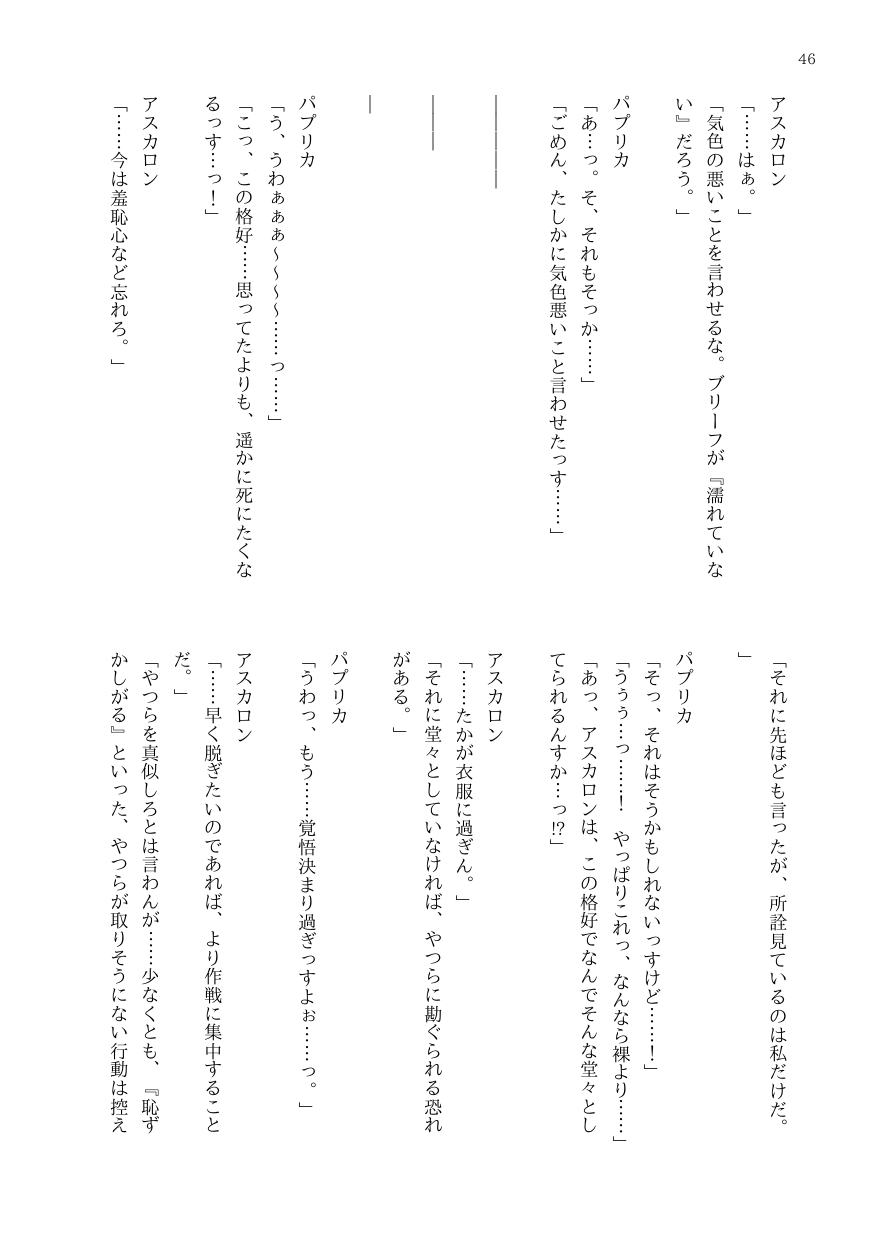 46
アスカロン
「……はぁ。」
「気色の悪いことを言わせるな。ブリーフが『濡れていな
い』だろう。」
パプリカ
「あ…っ。そ、それもそっか……」
「ごめん、たしかに気色悪いこと言わせたっす……」
―――――
―――
―
パプリカ
「う、うわぁぁぁ～～～～……っ……」
「こっ、この格好……思ってたよりも、遥かに死にたくな
るっす…っ！」
アスカロン
「……今は羞恥心など忘れろ。」
「それに先ほども言ったが、所詮見ているのは私だけだ。
」
パプリカ
「そっ、それはそうかもしれないっすけど……！」
「うぅぅ…っ……！　やっぱりこれっ、なんなら裸より……」
「あっ、アスカロンは、この格好でなんでそんな堂々とし
てられるんすか…っ!?」
アスカロン
「……たかが衣服に過ぎん。」
「それに堂々としていなければ、やつらに勘ぐられる恐れ
がある。」
パプリカ
「うわっ、もう……覚悟決まり過ぎっすよぉ……っ。」
アスカロン
「……早く脱ぎたいのであれば、より作戦に集中すること
だ。」
「やつらを真似しろとは言わんが……少なくとも、『恥ず
かしがる』といった、やつらが取りそうにない行動は控え